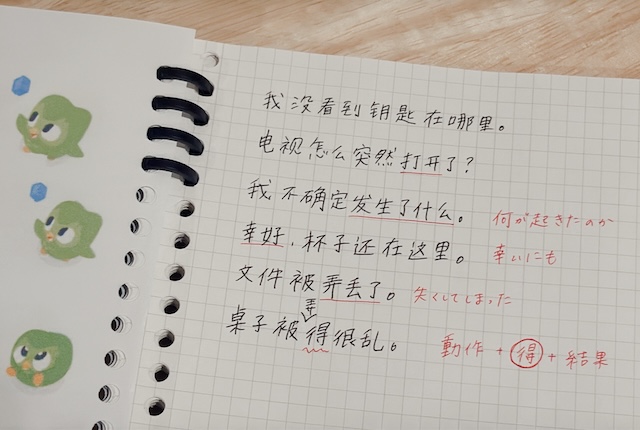 我没看到钥匙在哪里。
电视怎么突然打开了?
我不确定发生了什么。 何が起きたのか
幸好,杯子还在这里。 幸いにも
文件被弄丢了。 失くしてしまった
弄
桌子被得很乱。 動作 + 得 + 結果